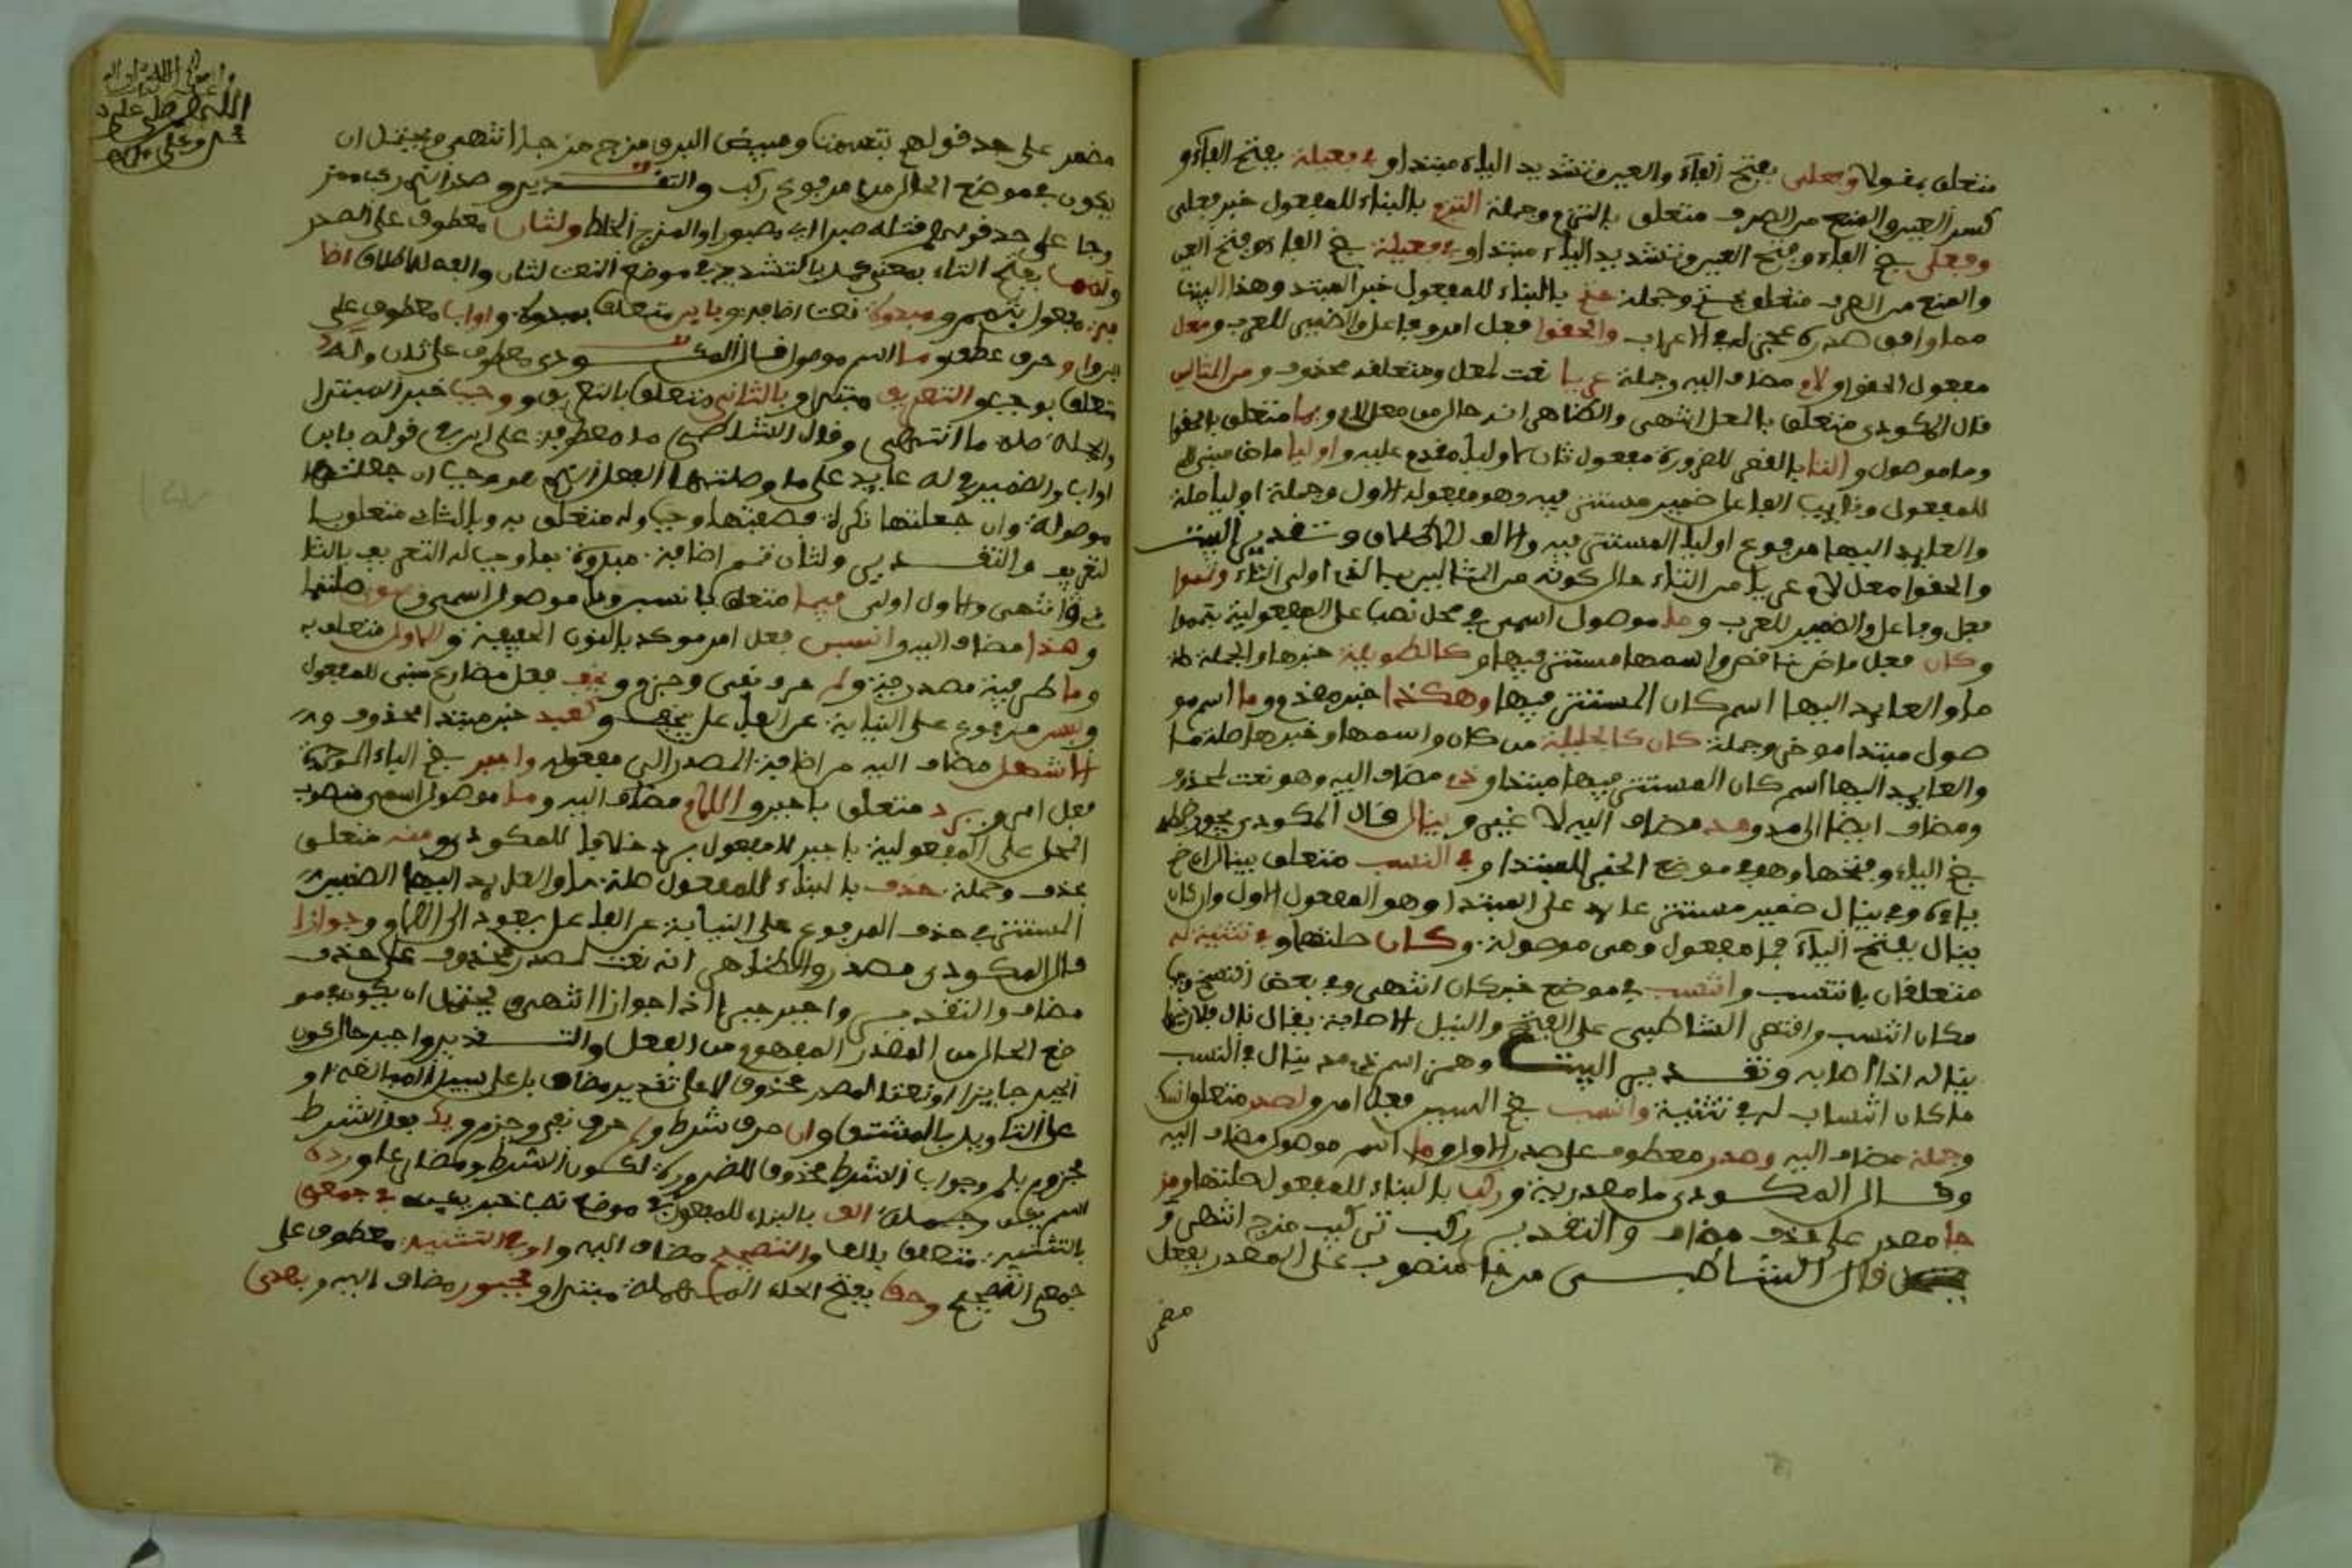 متعلق بمفولا وفعلى بفتح الفاء والعين وتشديد الياء مبتدا وفي فعيلة بفتح الفاء و
كسر العين والمنع من الصرف متعلق بالتزم وجملة التزم بالبناء للمفعول خبر فعلى
وفعلى بضم الفاء وفتح العين وتشديد الياء مبتدا وفي فعيلة بضم الفاء وفتح العين
والمنع من الصرف متعلق بحتم وجملة حتم بالبناء للمفعول خبر المبتدا وهذا البيت
مما وافق صدره عجزه في الاعراب والحقوا فعل امر وفاعل والضمير للعرب ومعل
مفعول الحقوا ولام مضاف اليه وجملة عريا نعت لمعل ومتعلقه محذوف ومن المثالين
قال المكودي متعلق بالمعل انتهى والظاهر انه حال من معل لام وبما متعلق بالحقوا
وما موصول والتا بالقصر للضرورة مفعول ثان لاوليا مقدم عليه واوليا ماض مبني لل
للمفعول ونايب الفاعل ضمير مستتر فيه وهو مفعوله الاول وجملة اوليا صلة
والعايد اليها مرفوع اوليا المستتر فيه والالف للاطلاق وتقدير البيت
والحقوا معل لام عريا من التاء حال كونه من المثالين بالذي اولي التاء وتمموا
فعل وفاعل والضمير للعرب وما موصول اسمي في محل نصب على المفعولية بتمموا
وكان فعل ماض ناقص واسمها مستتر فيها وكالطويلة خبرها والجملة صلة
ما والعايد اليها اسم كان المستتر فيها وهكذا خبر مقدم وما اسم مو
صول مبتدا موخر وجملة كان كالجليلة من كان واسمها وخبرها صلة ما
والعايد اليها اسم كان المستتر فيها مبتدا وذي مضاف اليه وهو نعت لمحذوف
ومضاف ايضا الى مد ومد مضاف اليه لا غير وينال قال المكودي يجوز ضم
ضم الياء وفتحها وهو في موضع الخبر للمبتدا وفي النسب متعلق بينال ان ضم
ياءه وفي ينال ضمير مستتر عايد على المبتدا وهو المفعول الاول وان كان
ينال بفتح الياء فما مفعول وهي موصولة وكان صلتها وفي تثنية له
متعلقان بانتسب وانتسب في موضع خبر كان انتهى وفي بعض النسخ وجب
مكان انتسب واقتصر الشاطبي على الفتح والنيل الاصابة يقال نال فلان
يناله اذا اصابه وتقدير البيت وهمز اسم ذي مد ينال في النسب
ما كان انتساب له في تثنية وانسب بضم السين فعل امر ولصدر متعلق بانسب
وجملة مضاف اليه وصدر معطوف على صدر الاول وما اسم موصول مضاف اليه
وقال المكودي ما مصدرية وركب بالبناء للمفعول صلتها ومز
جا مصدر على حذف مضاف والتقدير ركب تركيب مزج انتهى و
قال الشاطبي مزجا منصوب على المصدر بفعل
مضمر
مضمر على حد قولهم تبسمت وميض البرق مزج مزجا انتهى ويحتمل ان
يكون في موضع الحال من مرفوع ركب والتقدير وصدر الذي ركب مز
وجا على حد قولهم قتله صبرا اي مصبورا والمزج الخلط ولثان معطوف على لصدر
وتمما بفتح التاء بمعنى كمل بالتشديد في موضع النعت لثان والفه للاطلاق اضا
فة مفعول بتمم ومبدوة نعت اضافة وبابن متعلق بمبدوة واواب معطوف على
ابن واو حرف عطف وما اسم موصول قال المكودي معطوف على ثان وله
متعلق بوجب والتعريف مبتدا وبالثاني متعلق بالتعريف ووجب خبر المبتدا
والجملة صلة ما انتهى وقال الشاطبي ما معطوفة على ابن في قوله بابن
اواب والضمير في له عايد على ما وصلتها الفعل الذي هو وجب ان جعلتها
موصولة وان جعلتها نكرة فصفتها وجب وله متعلق به وبالثاني متعلق با
لتعريف والتقدير ولثان تمم اضافة مبدوة بما وجب له التعريف بالثا
ني انتهى والاول اولى فيما متعلق بانسبن وما موصول اسمي وسوى صلتها
وهذا مضاف اليه وانسبن فعل امر موكد بالنون الخفيفة وللاول متعلق به
وما ظرفية مصدرية ولم حرف نفي وجزم ويخف فعل مضارع مبني للمفعول
ولبس مرفوع على النيابة عن الفاعل بيخف وكعبد خبر مبتدا محذوف و
الاشهل مضاف اليه من اضافة المصدر الى مفعوله واجبر بضم الباء الموحدة
فعل امر وبرد متعلق باجبر واللام مضاف اليه وما موصول اسمي منصوب
المحل على المفعولية باجبر لا مفعول برد خلافا للمكودي ومنه متعلق
بحذف وجملة حذف بالبناء للمفعول صلة ما والعايد اليها الضمير
المستتر في حذف المرفوع على النيابة عن الفاعل يعود الى اللام وجوازا
قال المكودي مصدر والظاهر انه نعت لمصدر محذوف على حذف
مضاف والتقدير واجبر جبرا اذا جوازا انتهى ويحتمل ان يكون في مو
ضع الحال من المصدر المفهوم من الفعل والتقدير واجبر حال كون
الجبر جايزا او نعتا لمصدر محذوف لا على تقدير مضاف بل على سبيل المبالغة او
على التاويل بالمشتق وان حرف شرط ولم حرف نفي وجزم ويك فعل الشرط
مجزوم بلم وجواب الشرط محذوف للضرورة لكون الشرط مضارعا ورده
اسم يكن وجملة الف بالبناء للمفعول في موضع نصب خبر يكن في جمعي
بالتثنية متعلق بالف والتصحيح مضاف اليه واو في التثنية معطوف على
جمعي التصحيح وحق بفتح الحاء المهملة مبتدا ومجبور مضاف اليه وبهذي